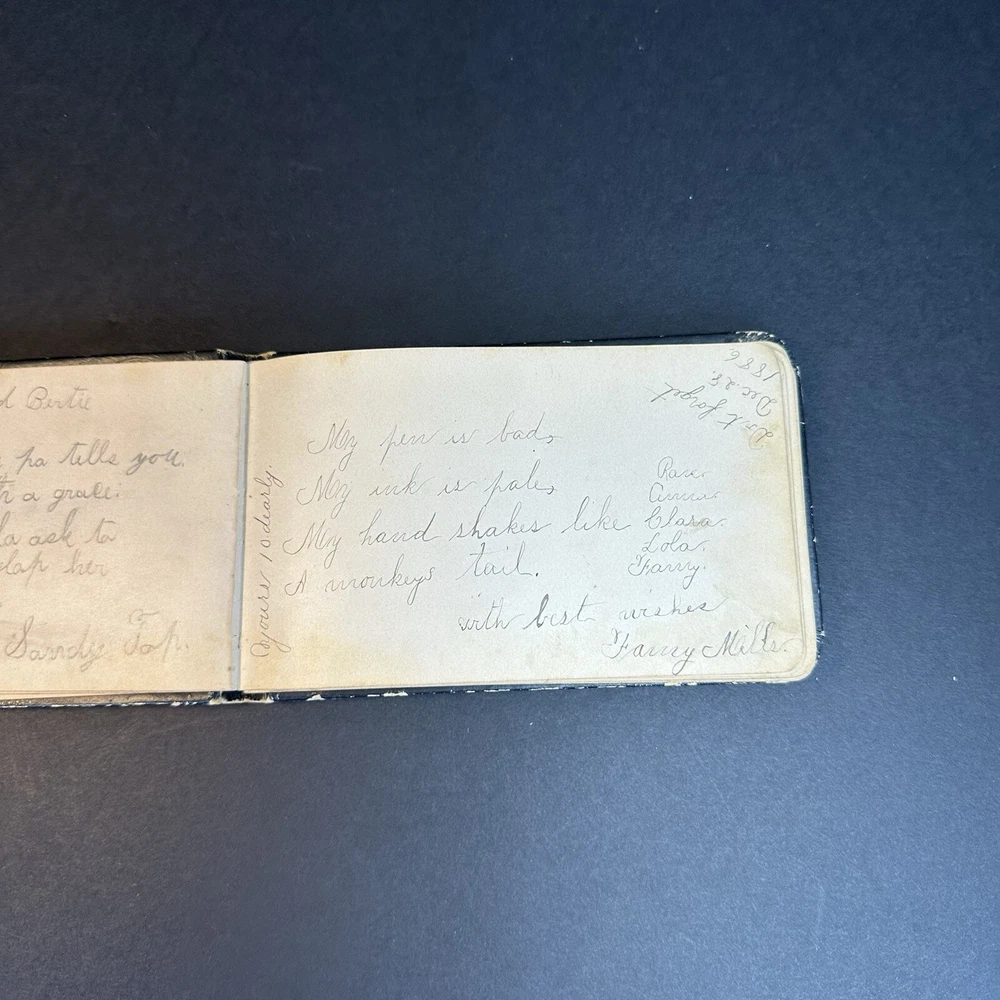 d Bertie
pa tells you.
a grace.
ask to
slap her
Sandy Top.
Dont forget
Dec. 28.
1886
yours 10 dearly.
My pen is bad,
My ink is pale,
My hand shakes like
A monkeys tail.
Anna
Clara.
Lola.
Fanny.
with best wishes
Fanny Mills.